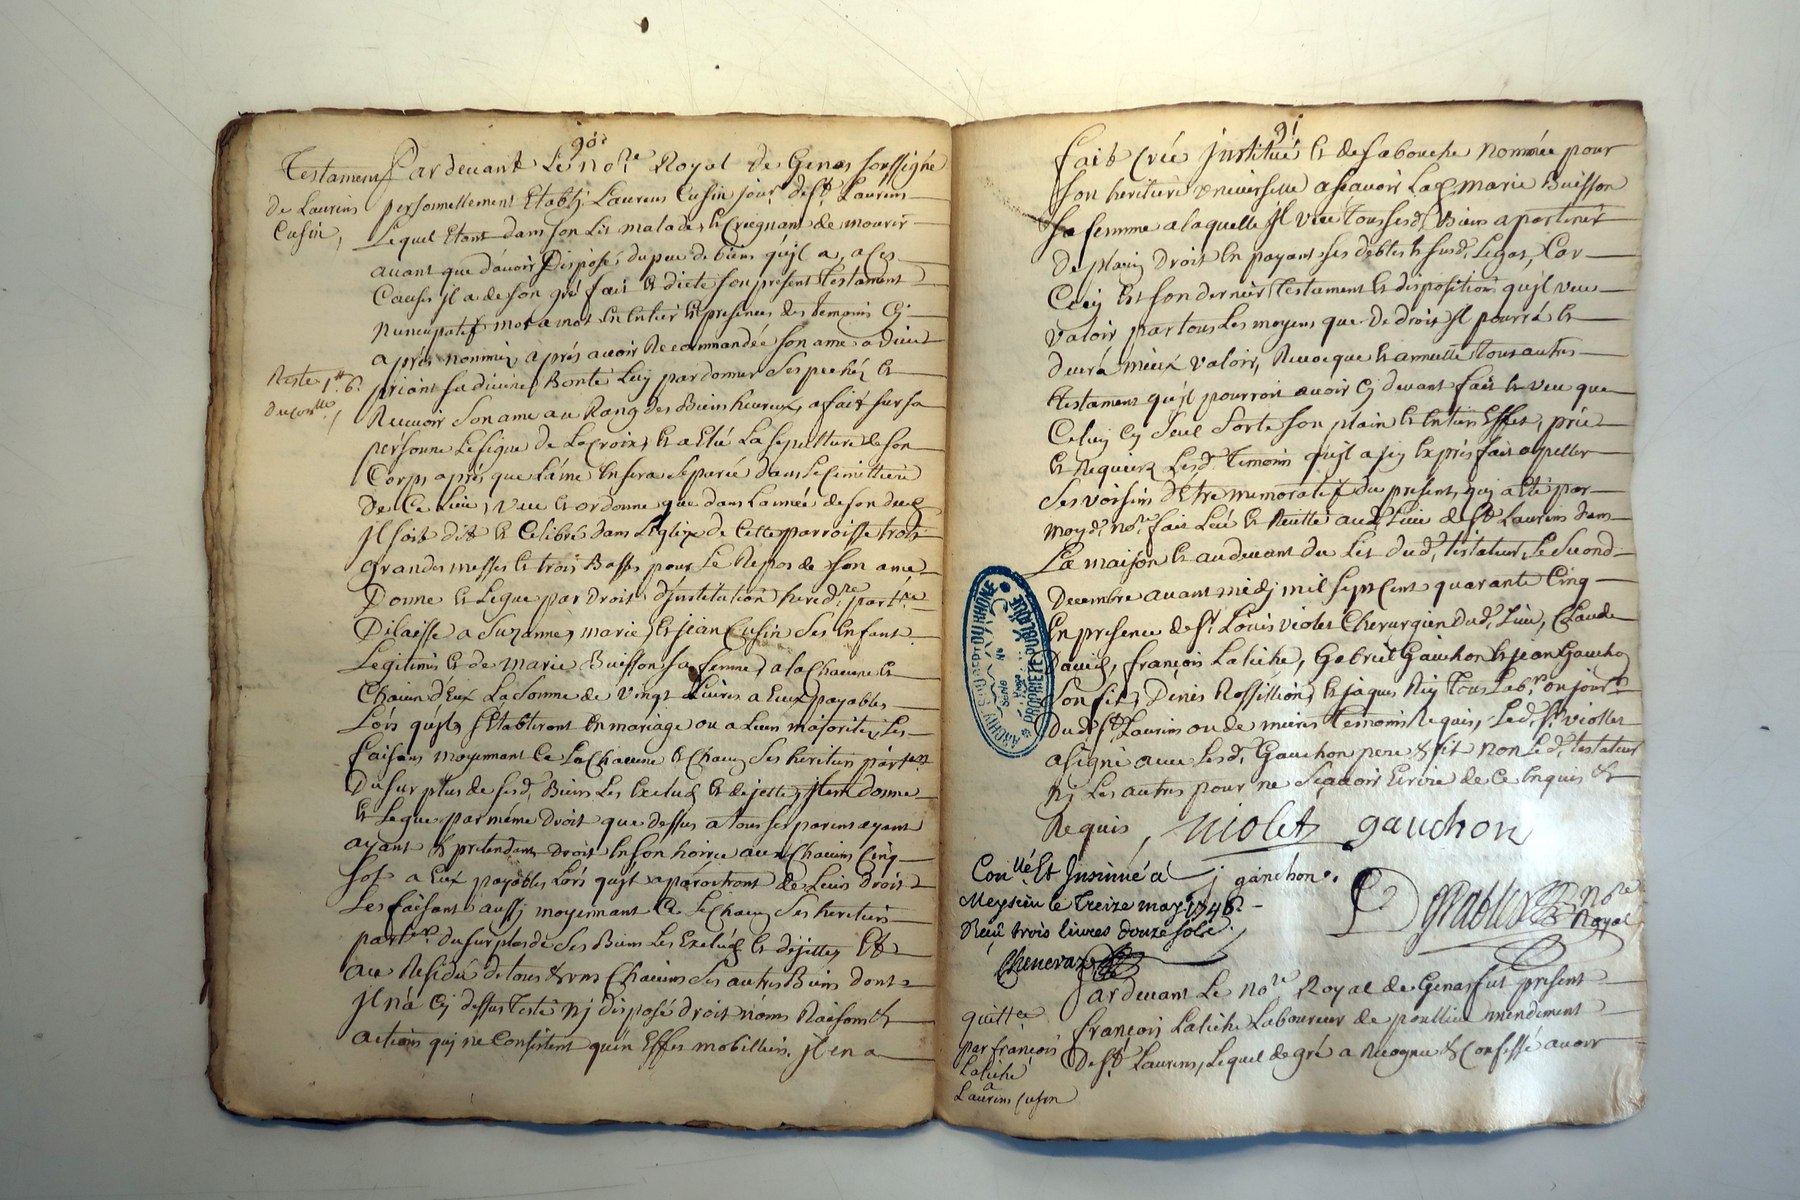 90.
Testament
de Laurens
Cusin,
Pardevant Le no.re Royal de Genas soussigné
personnellement Etably Laurens Cusin jour.r de S.t Laurens
Lequel Etant dans son Lit malade, et Creignant de mourir
avant que d'avoir Disposé, du peu de biens qu'jl a, a ces
Causes jl a de son gré fait et dicté son present testament
nuncupatif mot a mot en Entier Es presences des temoins Cy
aprés nommés, aprés avoir Recommandée son ame a Dieu
Reste 1.tt 6.
priant sa divine Bonté Luy pardonner ses pechéz et
Recevoir son ame au Rang des Bienheureux, a fait sur sa
personne Le signe de La Croix, et a Elû La sepulture de son
Corps aprés que L'ame En sera separée dans Le Cimittiere
De Ce Lieu, veut et ordonne que dans L'année de son decés
jl soit dit et Celebré dans L'Eglize de Cette parroisse trois
grandes messes et trois Basses pour Le Repos de son ame
Donne et Legue par Droit d'jnstitution hered.re part.re
Délaisse a Suzanne, marie, et jean Cusin ses Enfants
Legitimes et de marie Buisson sa femme, a la Chacune et
Chacun d'Eux La somme de vingt Livres a Eux payables
Lors qu'jls s'Etabliront En mariage ou a Leur majorité, Les
faisant moyennant Ce La Chacune et Chacun ses heritiers part.ers
Du surplus de sesd. Biens Les Exclud et dejette, jtem donne
Et Legue par méme Droit que dessus a tous ses parens ayant
ayant et pretendant Droit En son hoirie au Chacun Cinq
sols a Eux payables Lors qu'jls aparoitront de Leurs Droits
Les faisant aussy moyennant Ce Le Chacun ses heritiers
part.ers du surplus de ses Biens Les Exclud et dejette, Et
au Residu de tous et uns Chacuns ses autres Biens dont
jl n'a Cy dessus testé ny disposé droits noms Raisons et
actions quj ne Consistent qu'en Effets mobilliers. jl en a
91
fait Crée jnstitué et de sa bouche nommée pour
son heritiere universelle a sçavoir Lad. marie Buisson
sa femme a laquelle jl veut tous sesd. Biens apartenir
De plain Droit En payant ses debtes et susd. Legats, Car
Cecy Est son dernier testament et disposition qu'jl veut
valoir par tous Les moyens que de droit jl pourrá et
devrá mieux valoir, Revoque et annulle tous autres
testament qu'jl pourroit avoir Cy devant fait et veut que
Celuy Cy seul sorte son plain et Entier Effet, prie
et Requiert Lesd. temoins qu'jl a jcy Exprés fait apeller
ses voisins d'étre memoratif du present, quj a Eté par
moyd. no.re fait Leu et Recitté aud. Lieu de S.t Laurens dans
La maison et au devant du Lit dud. testateur, Le second
Decembre avant midj mil sept Cent quarante Cinq
En presence de S.r Louis violet Chirurgien dud. Lieu, Claude
David, françois Laliche, Gabriel Gauchon et jean Gauchon
son fils, Denis Rossillion, et jaques Rey tous Lab.rs ou jour.rs
Dud. S.t Laurens ou de mieres temoins Requis, Led. S.r violet
a signé avec Lesd. Gauchon pere et fils non Led. testateur
ny Les autres pour ne sçavoir Ecrire de Ce Enquis et
Requis, Violet gauchon
j gauchon.
no.re
Royal
Con.llé Et Insinué á
Meysieu le Treize may 1746
Reçu trois livres douze sols
Chenevaz
quitt.ce
par françois
Laliche
a
Laurens Cusin
Pardevant Le no.re Royal de Genas fut present
françois Laliche Laboureur de poullieu mendement
de S.t Laurens, Lequel de gré a Recognu et Confessé avoir
ARCHIVES DU DEPT DU RHONE
PROPRIETE PUBLIQUE
Serie
No